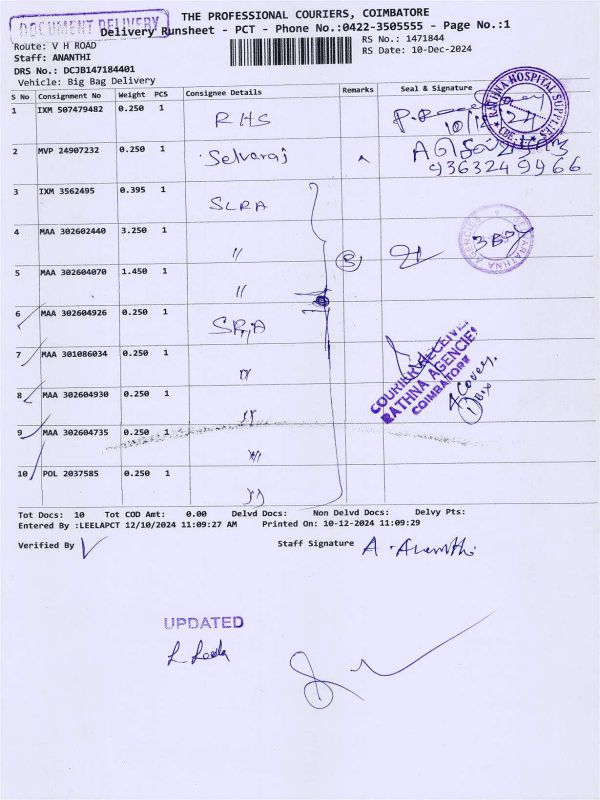 THE PROFESSIONAL COURIERS, COIMBATORE
DOCUMENT DELIVERY
Delivery Runsheet - PCT - Phone No.:0422-3505555 - Page No.:1
Route: V H ROAD
RS No.: 1471844
Staff: ANANTHI
RS Date: 10-Dec-2024
DRS No.: DCJB147184401
Vehicle: Big Bag Delivery
S No Consignment No Weight PCS Consignee Details Remarks Seal & Signature
1 IXM 507479482 0.250 1 RHS
RATHNA HOSPITAL SUPPLIES
2 MVP 24907232 0.250 1 Selvaraj
9363249966
3 IXM 3562495 0.395 1 SLRA
4 MAA 302602440 3.250 1 "
3 Box
AGENCIES
5 MAA 302604070 1.450 1 "
6 MAA 302604926 0.250 1 SRA
7 MAA 301086034 0.250 1 "
COURIER RECEIVED
RATHNA AGENCIES
COIMBATORE
4 Cover
1 Box
8 MAA 302604930 0.250 1 "
9 MAA 302604735 0.250 1 "
10 POL 2037585 0.250 1 "
Tot Docs: 10 Tot COD Amt: 0.00 Delvd Docs: Non Delvd Docs: Delvy Pts:
Entered By :LEELAPCT 12/10/2024 11:09:27 AM Printed On: 10-12-2024 11:09:29
Verified By
Staff Signature A. Ananthi
UPDATED
L Leela